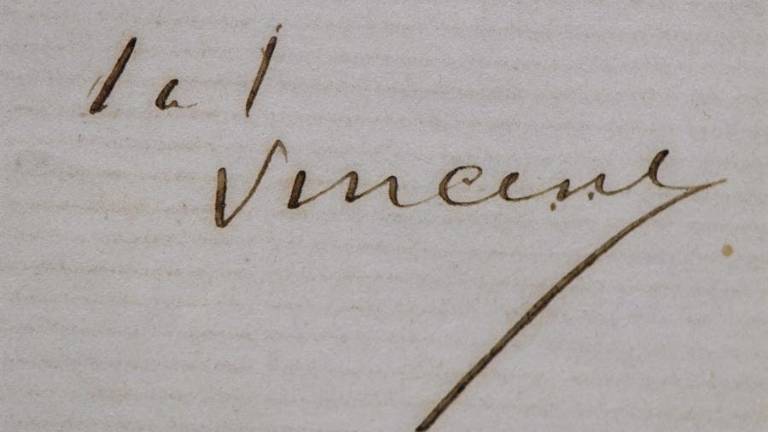 t. à t.
Vincent